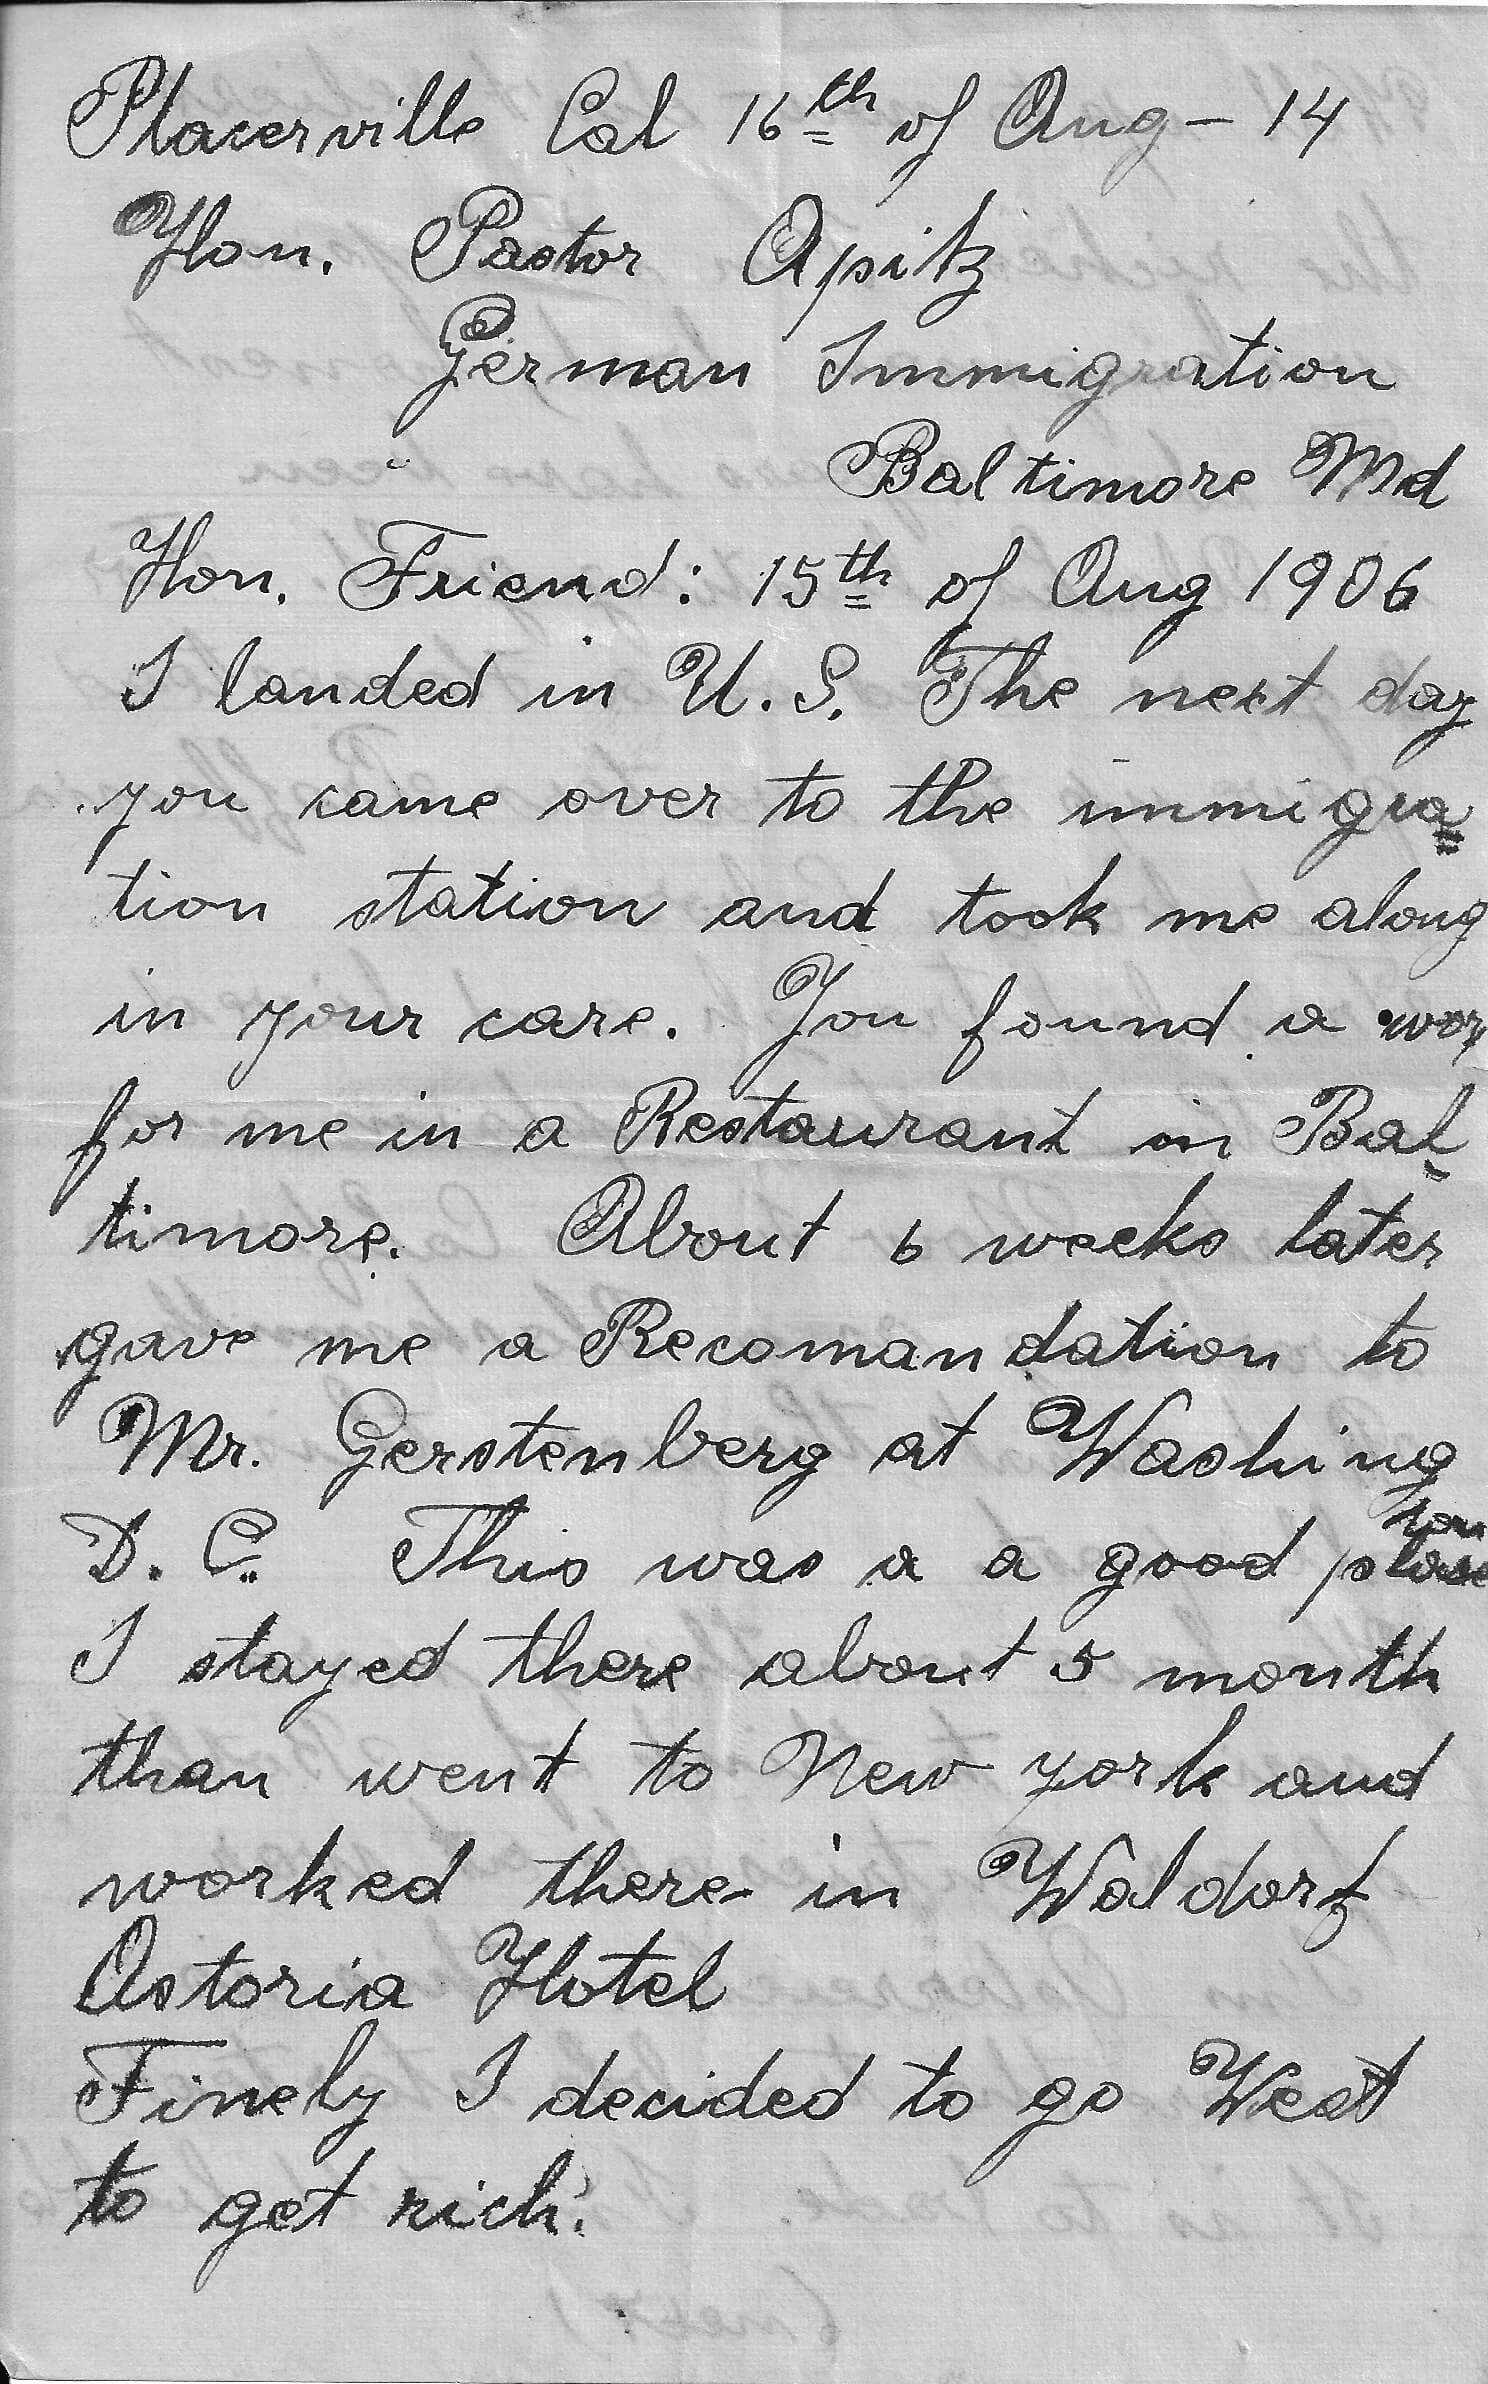 Placerville Cal 16th of Aug - 14
Hon. Pastor Apitz
German Immigration
Baltimore Md
Hon. Friend: 15th of Aug 1906
I landed in U. S. The next day
you came over to the immigra=
tion station and took me along
in your care. You found a wor
for me in a Restaurant in Bal-
timore. About 6 weeks later
gave me a Recomandation to
Mr. Gerstenberg at Washing
ton
D. C. This was a a good place
I stayed there about 5 month
than went to New york and
worked there in Waldorf
Astoria Hotel
Finely I decided to go West
to get rich.